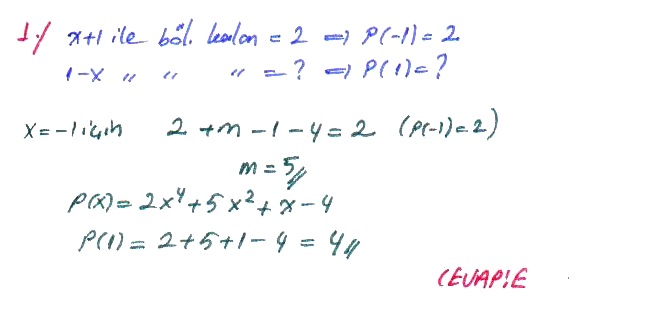 1-/ x+1 ile böl. kalan = 2 => P(-1) = 2
1-x " " " = ? => P(1) = ?
x = -1 için 2 + m - 1 - 4 = 2 (P(-1) = 2)
m = 5//
P(x) = 2x⁴ + 5x² + x - 4
P(1) = 2 + 5 + 1 - 4 = 4//
CEVAP: E